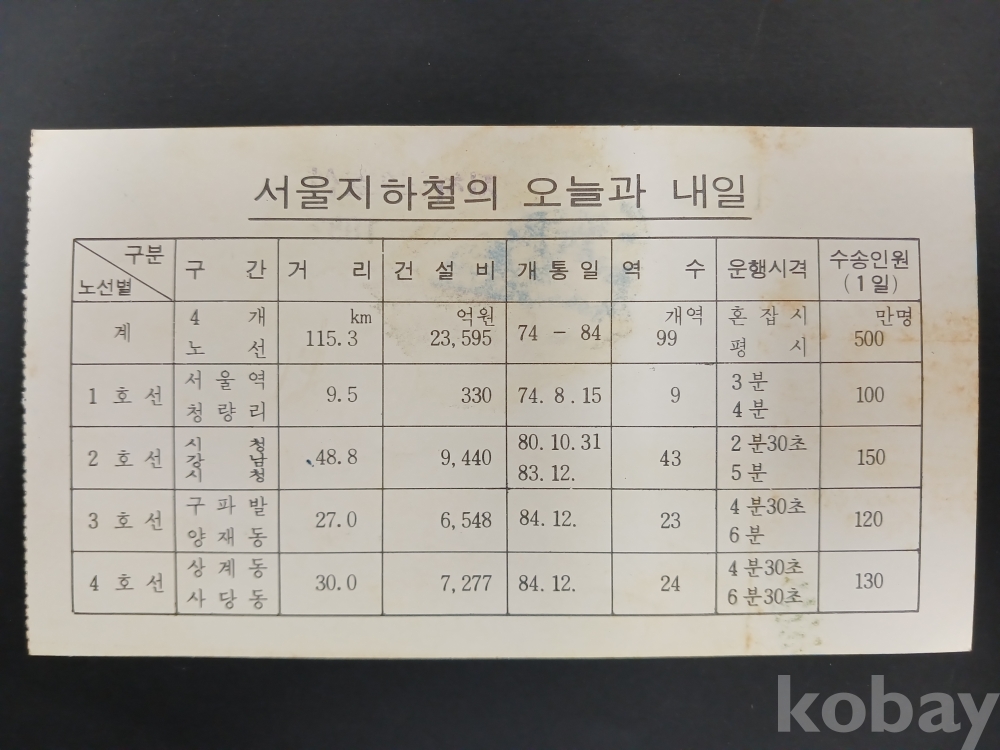 서울지하철의 오늘과 내일
구분 노선별 구간 거리 건설비 개통일 역수 운행시격 수송인원 (1일)
계 4개 노선 km 115.3 억원 23,595 74 - 84 개역 99 혼잡시 평시 만명 500
1호선 서울역 청량리 9.5 330 74. 8. 15 9 3분 4분 100
2호선 시청 강남 시청 48.8 9,440 80. 10. 31 83. 12. 43 2분30초 5분 150
3호선 구파발 양재동 27.0 6,548 84. 12. 23 4분30초 6분 120
4호선 상계동 사당동 30.0 7,277 84. 12. 24 4분30초 6분30초 130
kobay